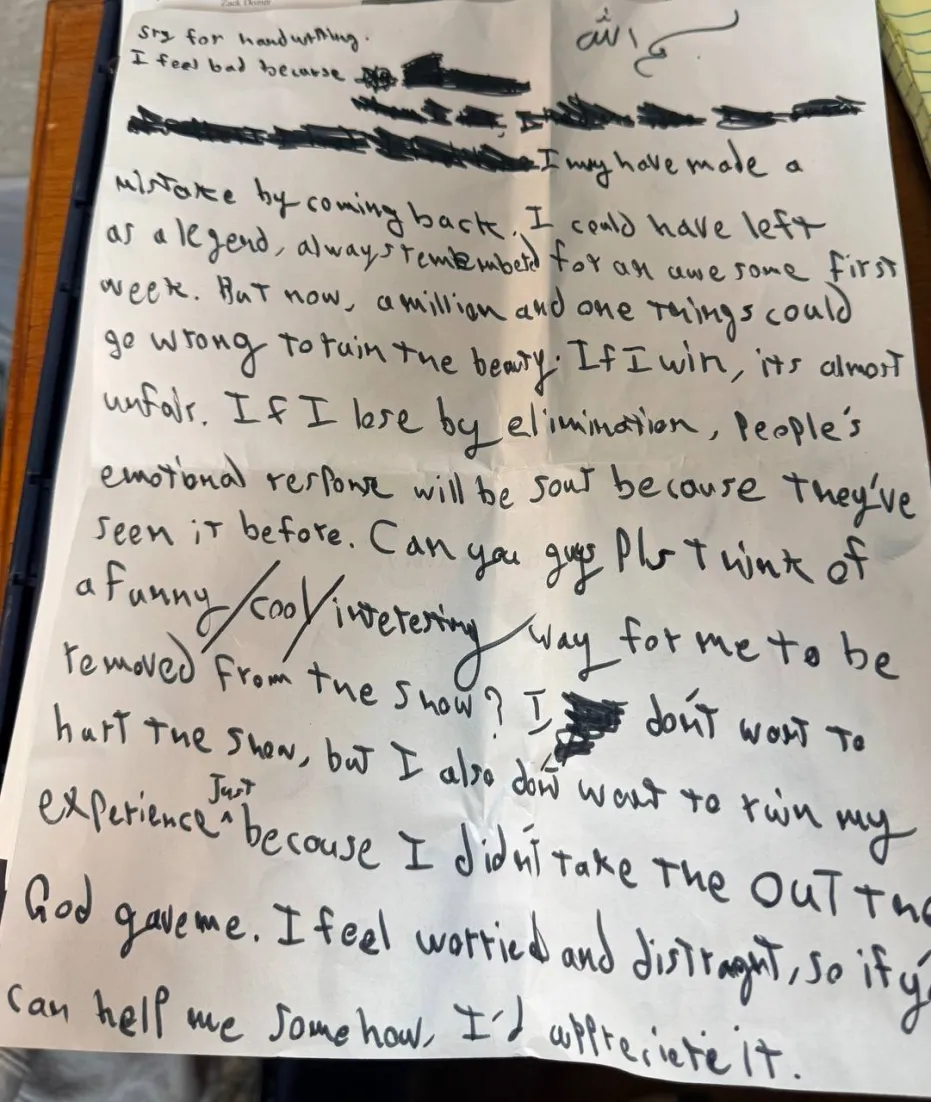 Zack Dorner
sry for handwriting.
I feel bad because
I may have made a
mistake by coming back. I could have left
as a legend, always remembered for an awesome first
week. But now, a million and one things could
go wrong to ruin the beauty. If I win, its almost
unfair. If I lose by elimination, people's
emotional response will be sour because they've
seen it before. Can you guys pls think of
a funny/cool/interesting way for me to be
removed from the show? I don't want to
hurt the show, but I also don't want to ruin my
experience just because I didn't take the OUT
God gave me. I feel worried and distraght, so if
can help me somehow, I'd appreciete it.